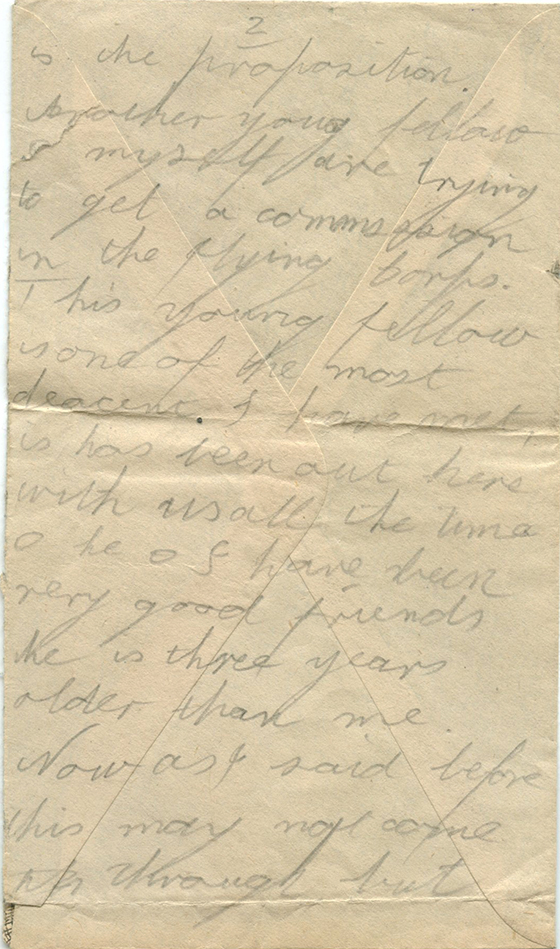 2
is the proposition.
Another young fellow
& myself are trying
to get a commssion
in the Flying Corps.
This young fellow
is one of the most
deacent I have met,
is has been out here
with us all the time
& he & I have been
very good friends
he is three years
older than me.
Now as I said before
this may not come
through but